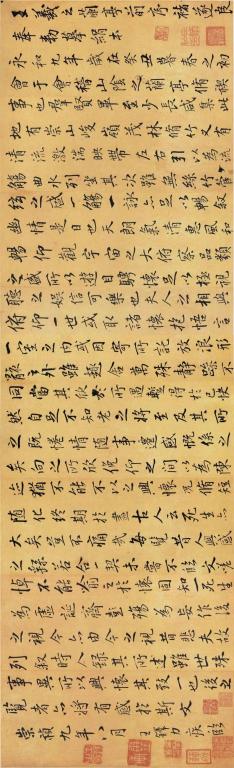 王羲之蘭亭前序褚遂良
奉勅摹搨本
永和九年歲在癸丑暮春之初
會于會稽山陰之蘭亭脩稧
事也羣賢畢至少長咸集此
地有崇山峻領茂林脩竹又有
清流激湍映帶左右引以為流
觴曲水列坐其次雖無絲竹管
弦之盛一觴一詠亦足以暢叙
幽情是日也天朗氣清惠風和
暢仰觀宇宙之大俯察品類
之盛所以遊目騁懷足以極視
聽之娛信可樂也夫人之相與
俯仰一世或取諸懷抱悟言
一室之內或因寄所託放浪形
骸之外雖趣舍萬殊靜躁不
同當其欣於所遇暫得於己快
然自足不知老之將至及其所
之既惓情隨事遷感慨係之
矣向之所欣俛仰之間以為陳
迹猶不能不以之興懷況脩短
隨化終期於盡古人云死生亦
大矣豈不痛哉每攬昔人興感
之由若合一契未嘗不臨文嗟
悼不能喻之於懷固知一死生
為虛誕齊彭殤為妄作後
之視今亦由今之視昔悲夫故
列叙時人錄其所述雖世殊
事異所以興懷其致一也後之
覽者亦將有感於斯文
崇禎九年八月王鐸力疾臨